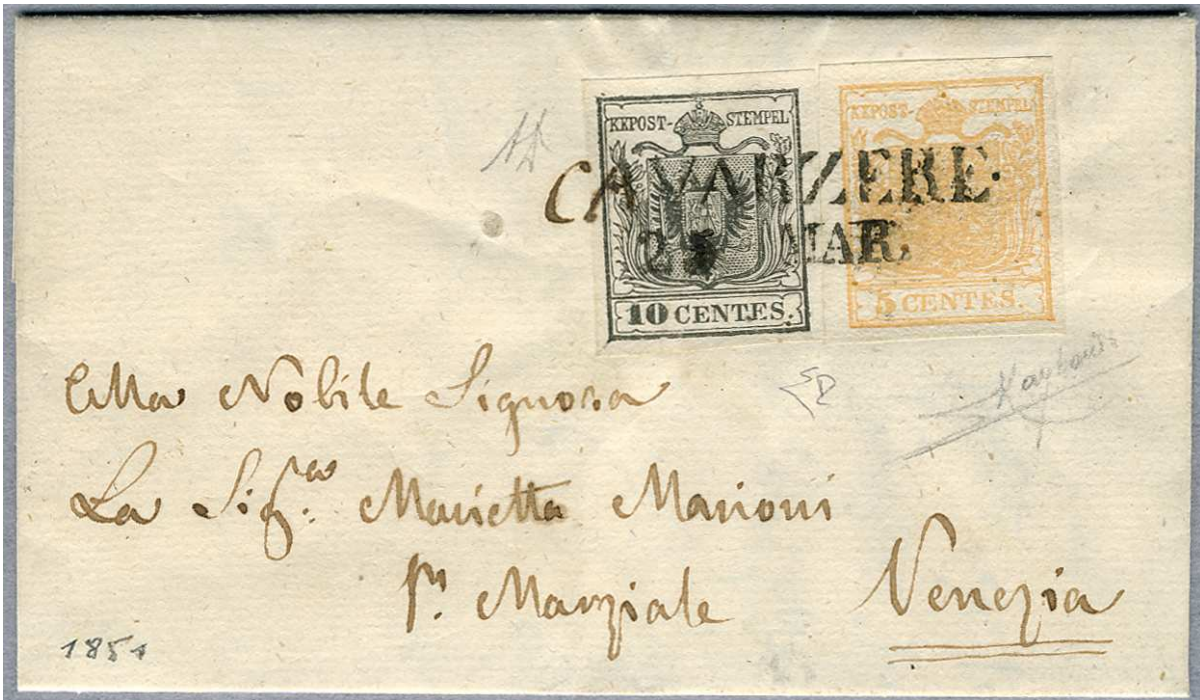 KKPOST-STEMPEL
10 CENTES.
KKPOST-STEMPEL
5 CENTES.
CAVARZERE.
MAR.
Alla Nobile Signora
La Sig.ra Marietta Marioni
Venezia
1851